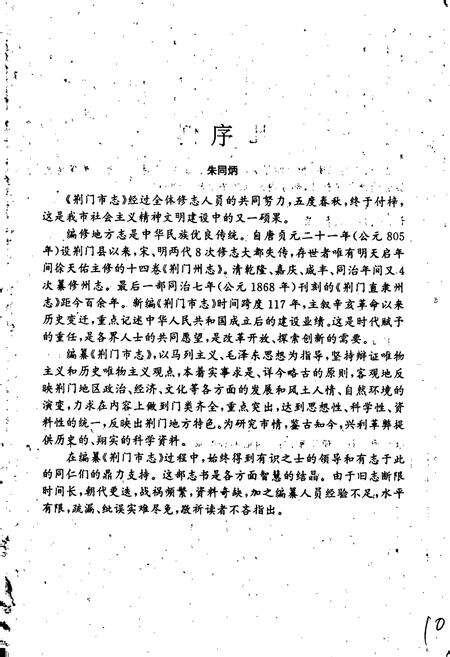 序
朱同炳
《荆门市志》经过全体修志人员的共同努力，五度春秋，终于付梓，
这是我市社会主义精神文明建设中的又一硕果。
编修地方志是中华民族优良传统。自唐贞元二十一年(公元805
年)设荆门县以来，宋、明两代8次修志大都失传，存世者唯有明天启年
间徐天佑主修的十四卷《荆门州志》。清乾隆、嘉庆、咸丰、同治年间又4
次纂修州志。最后一部同治七年(公元1868年)刊刻的《荆门直隶州
志》距今百余年。新编《荆门市志》时间跨度117年，主叙辛亥革命以来
历史变迁，重点记述中华人民共和国成立后的建设业绩。这是时代赋予
的重任，是各界人士的共同愿望，是改革开放、探索创新的需要。
编纂《荆门市志》，以马列主义、毛泽东思想为指导，坚持辩证唯物
主义和历史唯物主义观点，本着实事求是、详今略古的原则，客观地反
映荆门地区政治、经济、文化等各方面的发展和风土人情、自然环境的
演变，力求在内容上做到门类齐全，重点突出，达到思想性、科学性、资
料性的统一，反映出荆门地方特色。为研究市情，鉴古知今，兴利革弊提
供历史的、翔实的科学资料。
在编纂《荆门市志》过程中，始终得到有识之士的领导和有志于此
的同仁们的鼎力支持。这部志书是各方面智慧的结晶。由于旧志断限
时间长，朝代更迭，战祸频繁，资料奇缺，加之编纂人员经验不足，水平
有限，疏漏、纰误实难尽免，敬祈读者不吝指出。
10